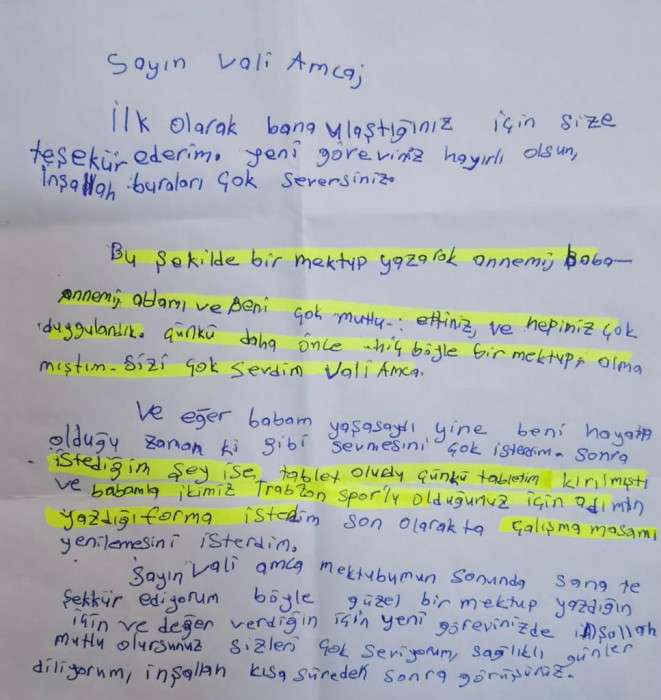 Sayın Vali Amcaj
İlk olarak bana ulaştığınız için size
teşekür ederim. yeni göreviniz hayırlı olsun,
İnşallah buraları çok seversiniz.
Bu şekilde bir mektup yazarak annemi, baba-
annemi, ablamı ve beni çok mutlu ettiniz, ve hepiniz çok
duygulandık. çünkü daha önce hiç böyle bir mektup olma
mıştım. Sizi çok Sevdim Vali Amca.
Ve eğer babam yaşasaydı yine beni hayatta
olduğu zaman ki gibi sevmesini çok isterdim. Sonra
istediğim şey ise, tablet olurdu çünkü tabletim kırılmıştı
ve babamla ikimiz Trabzon spor'lu olduğunuz için adımın
yazdığı forma istedim son olarakta çalışma masamı
yenilemesini isterdim.
Sayın Vali amca mektubumun sonunda sana te
şekkür ediyorum böyle güzel bir mektup yazdığın
için ve değer verdiğin için yeni görevinizde inşallah
mutlu olursunuz sizleri çok seviyorum, sağlıklı günler
diliyorum, inşallah kısa süreden sonra görüşürüz.